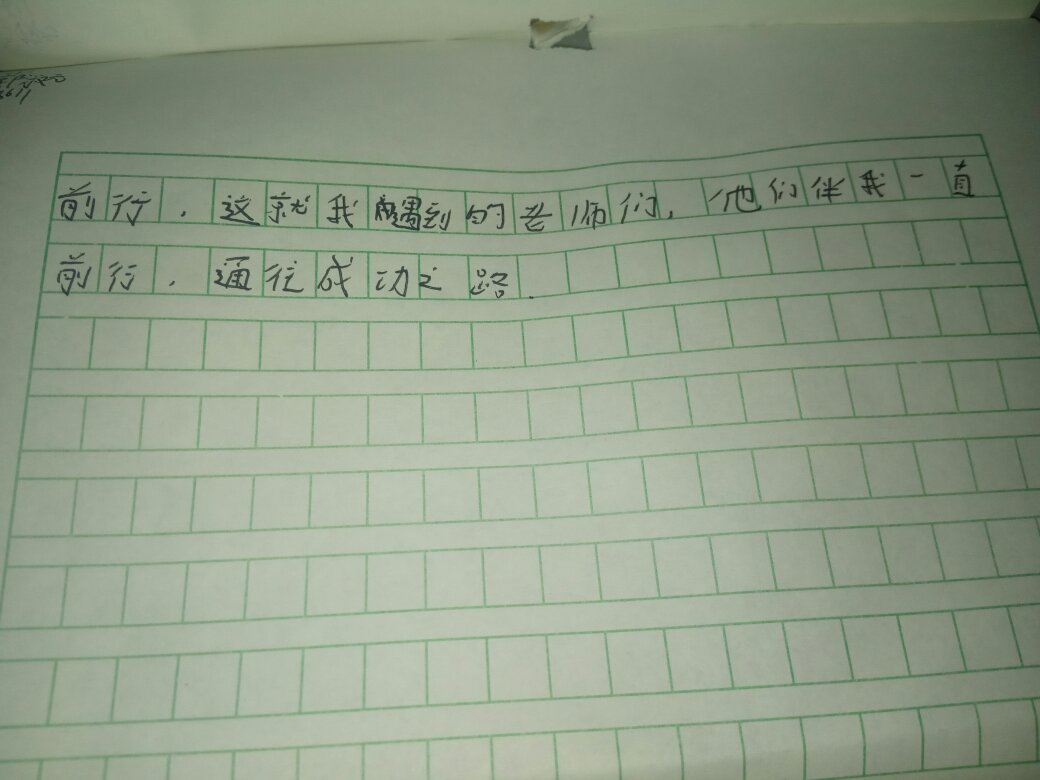 前行.这就我遇到的老师们,他们伴我一直
前行.通往成功之路.